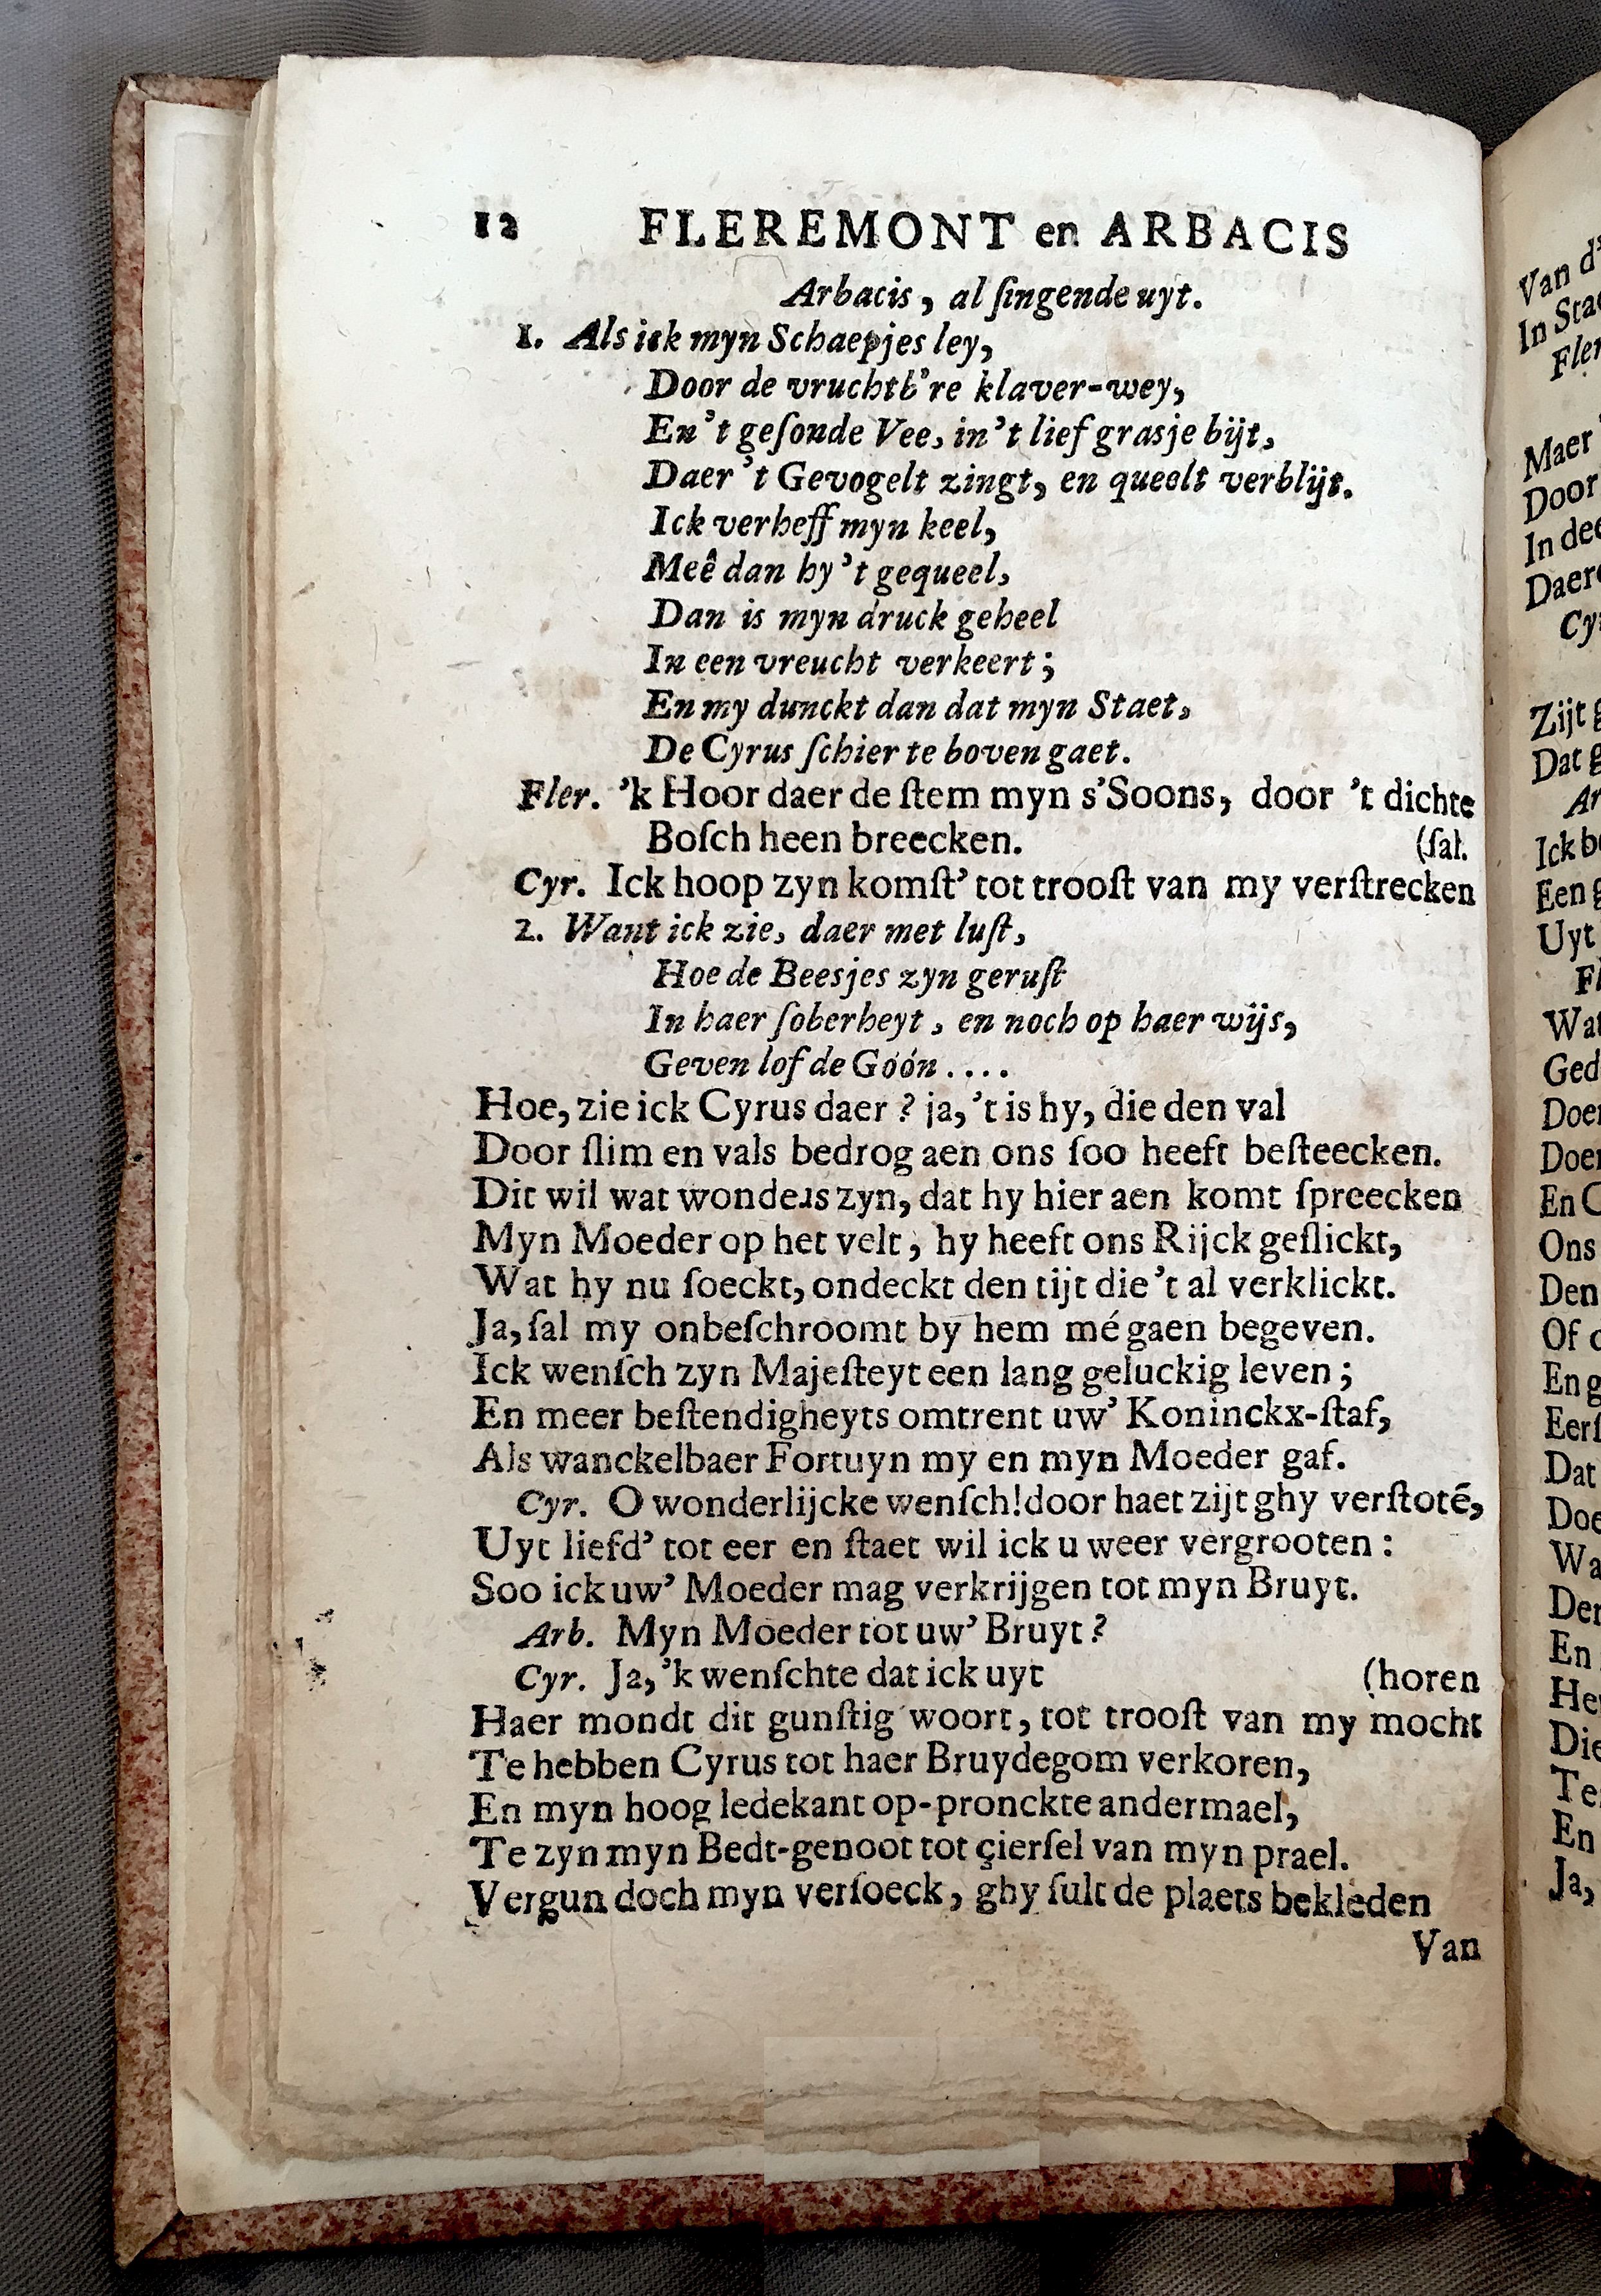 12 FLEREMONT en ARBACIS
Arbacis, al ſingende uyt.
1. Als ick myn Schaepjes ley,
Door de vruchtb're klaver-wey,
En't geſonde Vee, in't lief grasje bijt,
Daer 't Gevogelt zingt, en queelt verblijt.
Ick verheff myn keel,
Meê dan by 't gequeel,
Dan is myn druck geheel
In een vreucht verkeert;
En my dunckt dan dat myn Staet,
De Cyrus ſchier te boven gaet.
Fler. 'k Hoor daer de ſtem myn s'Soons, door 't dichte
Boſch heen breecken. (ſal.
Cyr. Ick hoop zyn komſt' tot trooſt van my verſtrecken
2. Want ick zie, daer met luſt,
Hoe de Beesjes zyn geruſt
In haer ſoberheyt, en noch op haer wijs,
Geven lof de Góón....
Hoe, zie ick Cyrus daer? ja, 't is hy, die den val
Door ſlim en vals bedrog aen ons ſoo heeft beſteecken.
Dit wil wat wonders zyn, dat hy hier aen komt ſpreecken
Myn Moeder op het velt, hy heeft ons Rijck geſlickt,
Wat hy nu ſoeckt, ondeckt den tijt die 't al verklickt.
Ja, ſal my onbeſchroomt by hem mé gaen begeven.
Ick wenſch zyn Majeſteyt een lang geluckig leven;
En meer beſtendigheyts omtrent uw' Koninckx-ſtaf,
Als wanckelbaer Fortuyn my en myn Moeder gaf.
Cyr. O wonderlijcke wenſch! door haet zijt ghy verſtotē,
Uyt liefd' tot eer en ſtaet wil ick u weer vergrooten:
Soo ick uw' Moeder mag verkrijgen tot myn Bruyt.
Arb. Myn Moeder tot uw' Bruyt?
Cyr. Ja, 'k wenſchte dat ick uyt (horen
Haer mondt dit gunſtig woort, tot trooſt van my mocht
Te hebben Cyrus tot haer Bruydegom verkoren,
En myn hoog ledekant op-pronckte andermael,
Te zyn myn Bedt-genoot tot çierſel van myn prael.
Vergun doch myn verſoeck, ghy ſult de plaets bekleden
Van
Van d'
In
Maer
Door
In
Zijt
Dat
Ick
Een
Uyt
Ons
Den
Of
En
Dat
En
Die
En
Ja,